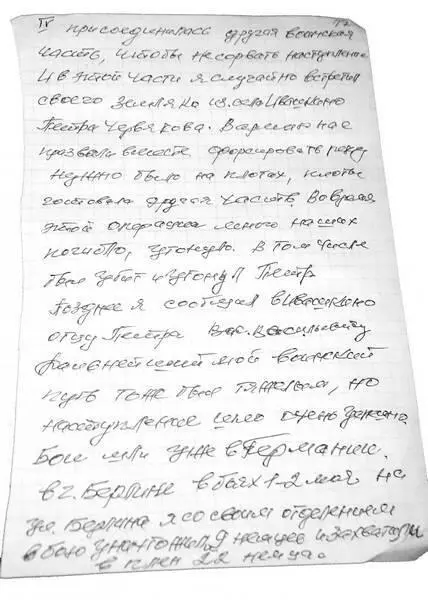 IV присоединилась другая воинская
часть, чтобы не сорвать наступление
И в этой части я случайно встретил
своего земляка из села Ивашкино
Петра Червякова. В армию нас
призвали вместе форсировать реку
нужно было на плотах, плоты
готовила другая часть. Во время
этой операции много наших
погибло, утонуло. В том числе
был убит и утонул Петр
Позднее я сообщил в Ивашкино
отцу Петра Васильевичу
дальнейший мой воинский
путь тоже был тяжелым, но
наступление шло очень удачно.
Бои шли уже в Германии.
в г. Берлине в боях 1-2 мая на
ул. Берлина я со своим отделением
в бою уничтожил 9 немцев и захватили
в плен 22 немца.